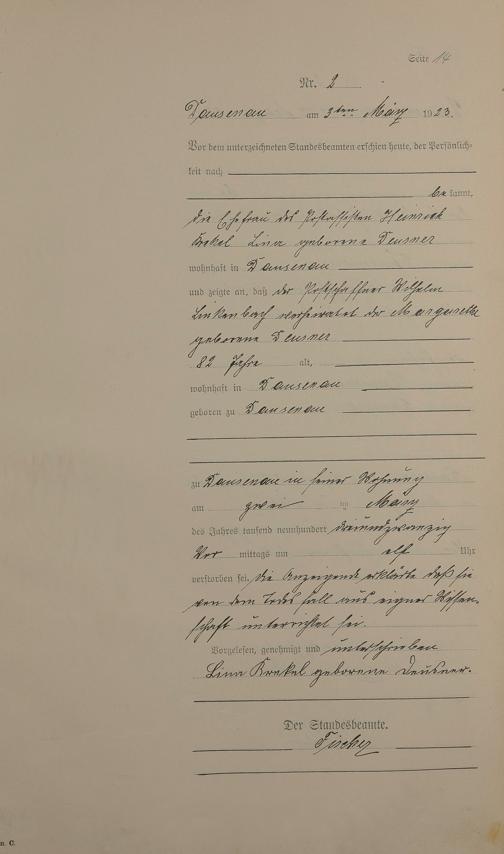 Seite 14
Nr. 2
Dausenau am 3ten März 1923.
Vor dem unterzeichneten Standesbeamten erschien heute, der Persönlich-
keit nach
be kannt,
die Ehefrau des Postassisten Heinrich
Krekel Lina geborene Deusner
wohnhaft in Dausenau
und zeigte an, daß der Postschaffner Wilhelm
Linkenbach verheiratet der Margarethe
geborene Deusner
82 Jahre alt,
wohnhaft in Dausenau
geboren zu Dausenau
zu Dausenau in seiner Wohnung
am zwei März
des Jahres tausend neunhundert dreiundzwanzig
Vor mittags um elf Uhr
verstorben sei. Die Anzeigende erklärte daß sie
von dem Todes fall aus eigner Wissen-
schaft unterrichtet sei.
Vorgelesen, genehmigt und unterschrieben
Lina Krekel geborene Deusner.
Der Standesbeamte.
Fischer
n. C.